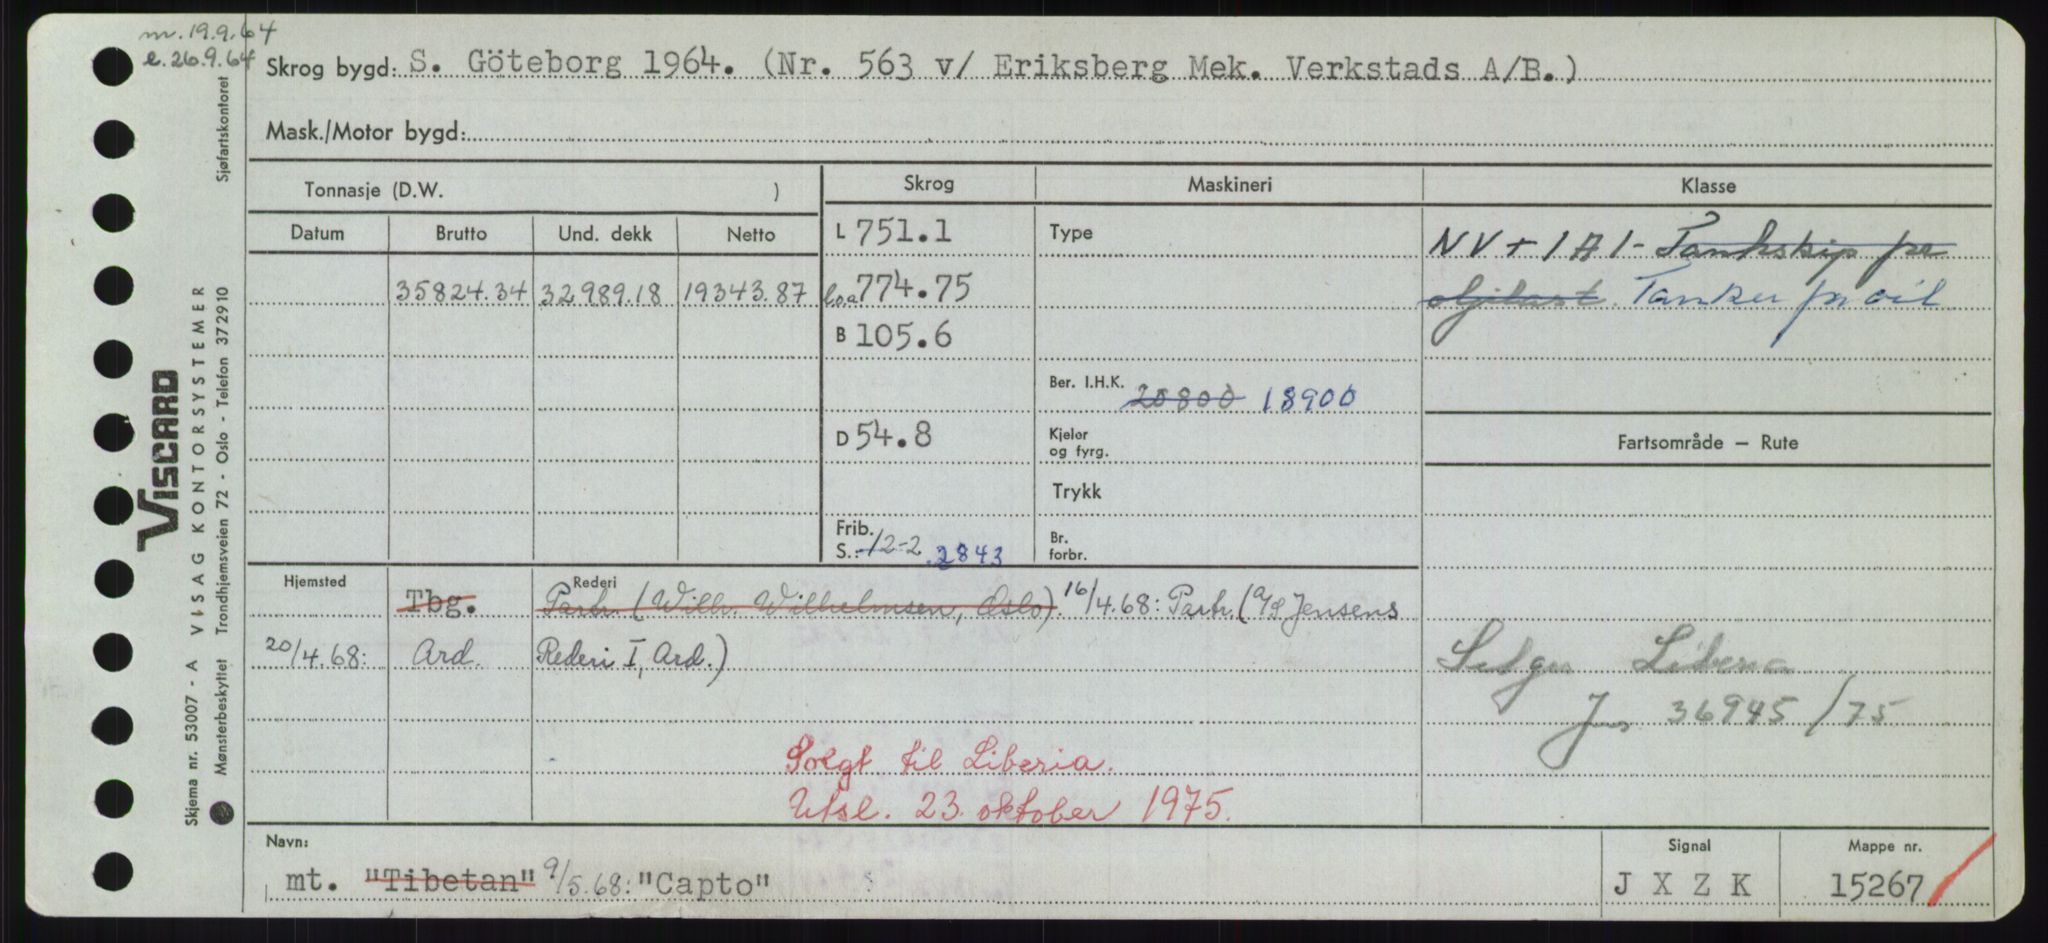 m. 19.9.64
e. 26.9.64
Skrog bygd: S. Göteborg 1964. (Nr. 563 v/ Eriksberg Mek. Verkstads A/B.)
Mask./Motor bygd:
Tonnasje (D.W. )
Skrog
Maskineri
Klasse
Datum
Brutto
Und. dekk
Netto
L 751.1
Type
NV + 1A1 - Tankskip for
35824.34 32989.18 19343.87
loa 774.75
oljelast. Tanker for oil
B 105.6
Ber. I.H.K. 20800 18900
D 54.8
Kjeler
og fyrg.
Fartsområde – Rute
Trykk
Frib.
S.: 12-2 2843
Br.
forbr.
Hjemsted
Rederi
Tbg. Partr. (Wilh. Wilhelmsen, Oslo). 16/4.68: Partr. (A/S Jensens
20/4.68: Ard. Rederi I, Ard.)
Selges Liberia
Jnr 36945/75
Solgt til Liberia.
Utsl. 23. oktober 1975.
Navn:
mt. "Tibetan" 9/5.68: "Capto"
Signal
J X Z K
Mappe nr.
15267
VISCARD
Skjema nr. 53007 - A VISAG KONTORSYSTEMER
Mønsterbeskyttet Trondhjemsveien 72 - Oslo - Telefon 37 29 10
Sjøfartskontoret